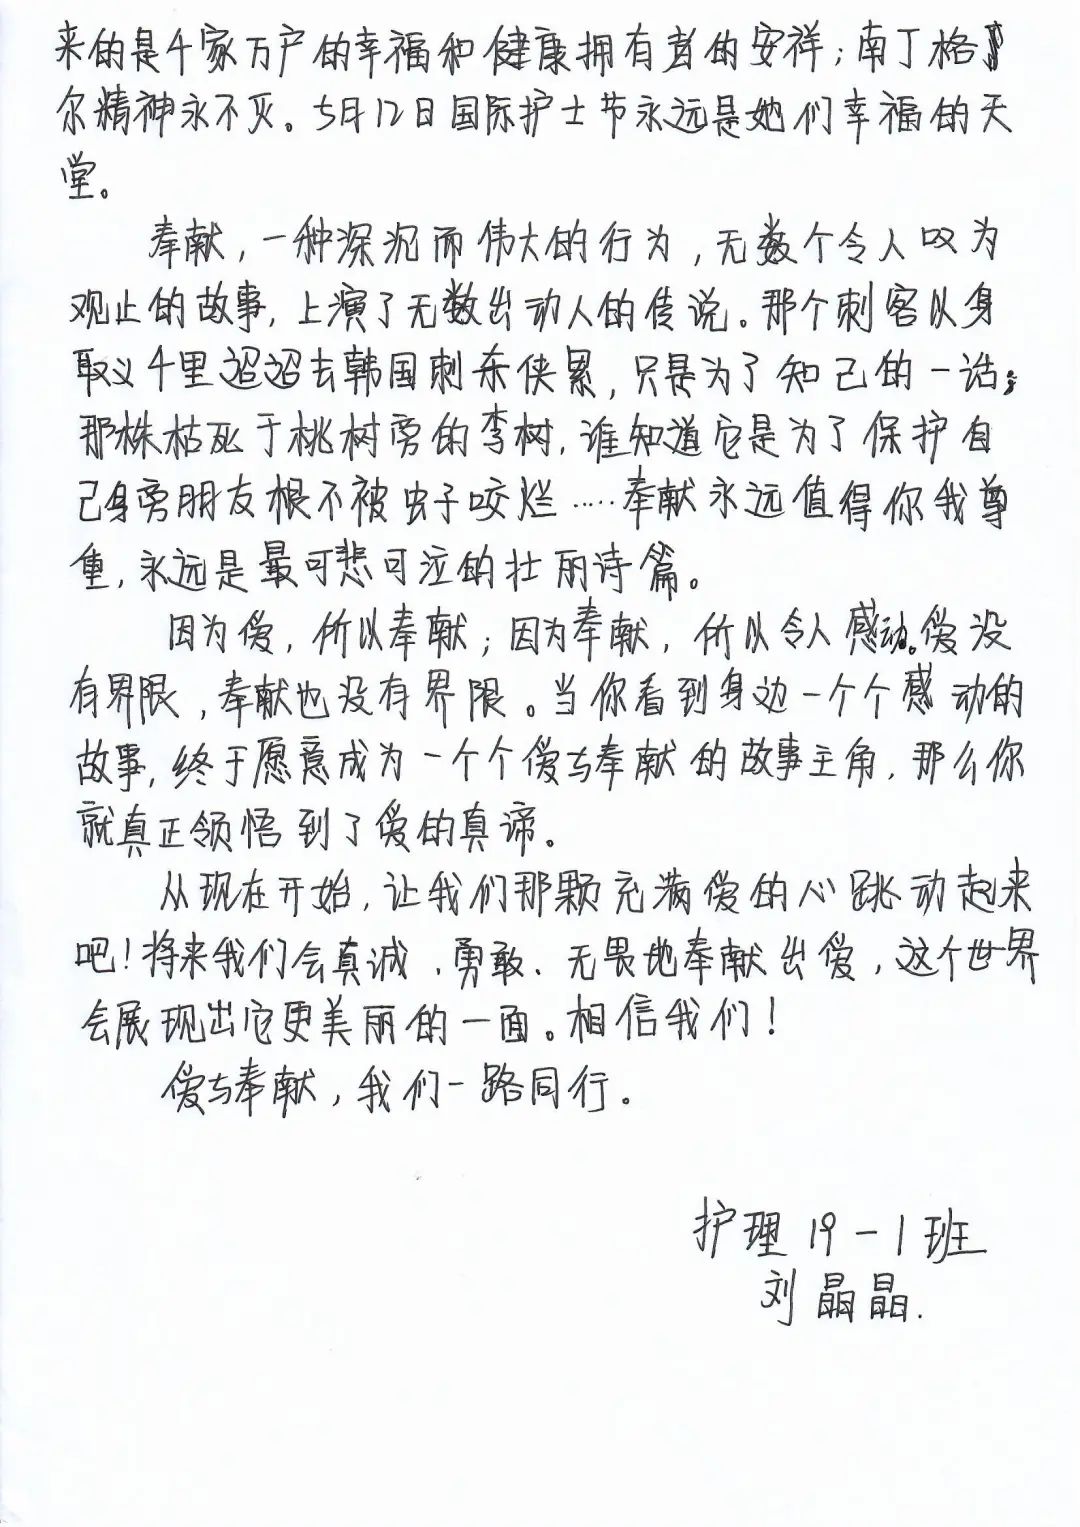 来的是千家万户的幸福和健康拥有者的安祥；南丁格
尔精神永不灭。5月12日国际护士节永远是她们幸福的天
堂。
奉献，一种深沉而伟大的行为，无数个令人叹为
观止的故事，上演了无数出动人的传说。那个刺客以身
取义千里迢迢去韩国刺杀侠累，只是为了知己的一话；
那株枯死于桃树旁的李树，谁知道它是为了保护自
己身旁朋友根不被虫子咬烂……奉献永远值得你我尊
重，永远是最可悲可泣的壮丽诗篇。
因为爱，所以奉献；因为奉献，所以令人感动。爱没
有界限，奉献也没有界限。当你看到身边一个个感动的
故事，终于愿意成为一个个爱与奉献的故事主角，那么你
就真正领悟到了爱的真谛。
从现在开始，让我们那颗充满爱的心跳动起来
吧！将来我们会真诚、勇敢、无畏地奉献出爱，这个世界
会展现出它更美丽的一面。相信我们！
爱与奉献，我们一路同行。
护理19-1班
刘晶晶.